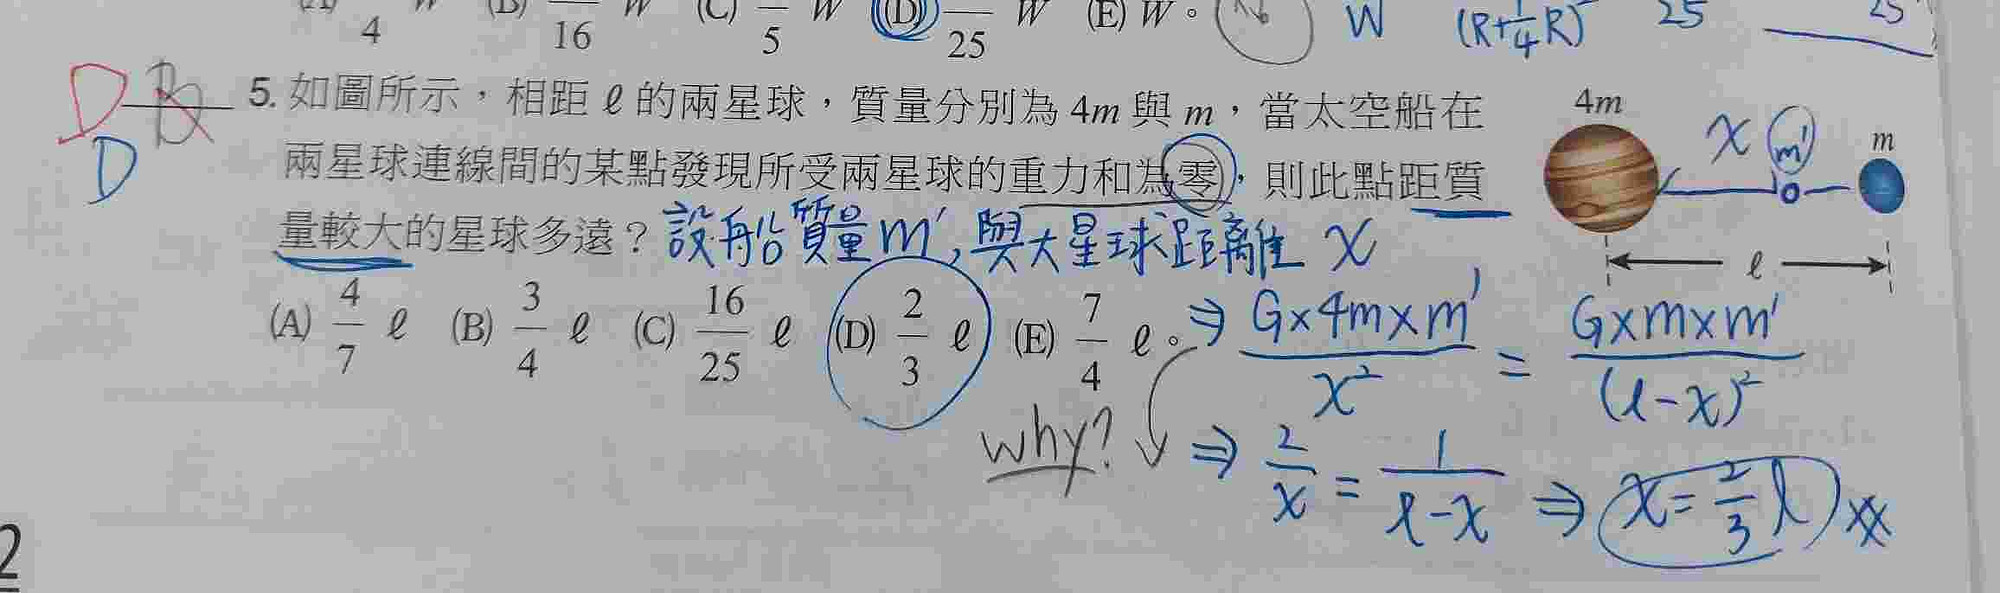 4 W (B) 16 W (C) 5 W (D) 25 W (E) W。 W (R+1/4R)² 25 25
D B 5. 如圖所示，相距 ℓ 的兩星球，質量分別為 4m 與 m，當太空船在
D 兩星球連線間的某點發現所受兩星球的重力和為零，則此點距質
量較大的星球多遠？設船質量m′,與大星球距離 x
(A) 4/7 ℓ (B) 3/4 ℓ (C) 16/25 ℓ (D) 2/3 ℓ (E) 7/4 ℓ。
4m x m′ m
ℓ
⇒ G×4m×m′/x² = G×m×m′/(ℓ-x)²
why? ⇒ 2/x = 1/(ℓ-x) ⇒ x=2/3 ℓ
2